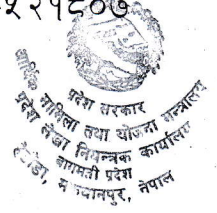 ५२१८०७
प्रदेश सरकार
आर्थिक मामिला तथा योजना मन्त्रालय
प्रदेश लेखा नियन्त्रक कार्यालय
बागमती प्रदेश
हेटौंडा, मकवानपुर, नेपाल